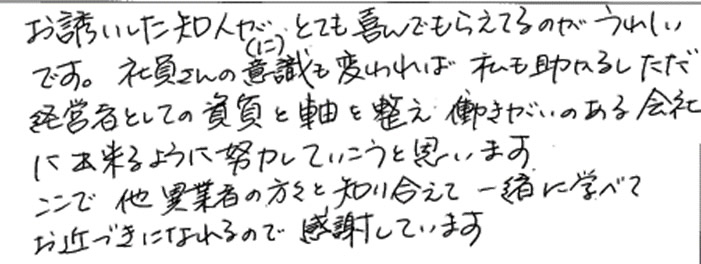 お誘いした知人が とても喜んでもらえてるのが うれしい
です。社員さんの(に)意識も変われば 私も助かるし ただ
経営者としての資質と軸を整え 働きがいのある会社
に出来るように努力していこうと思います
ここで 他異業者の方々と知り合えて 一緒に学べて
お近づきになれるので 感謝しています